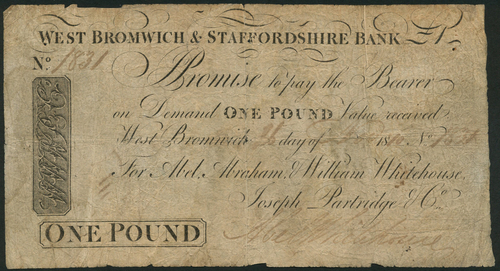 WEST BROMWICH & STAFFORDSHIRE BANK
No. 1831
I Promise to pay the Bearer
on Demand ONE POUND Value received
West Bromwich day of 18 No.
For Abel, Abraham, & William Whitehouse,
Joseph Partridge & Co.
ONE POUND
Abel Whitehouse